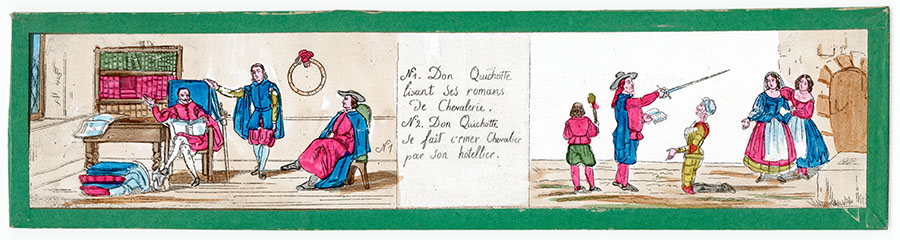 N1. Don Quichotte
lisant ses romans
de Chevalerie.
N2. Don Quichotte
se fait armer Chevalier
par son hôtellier.